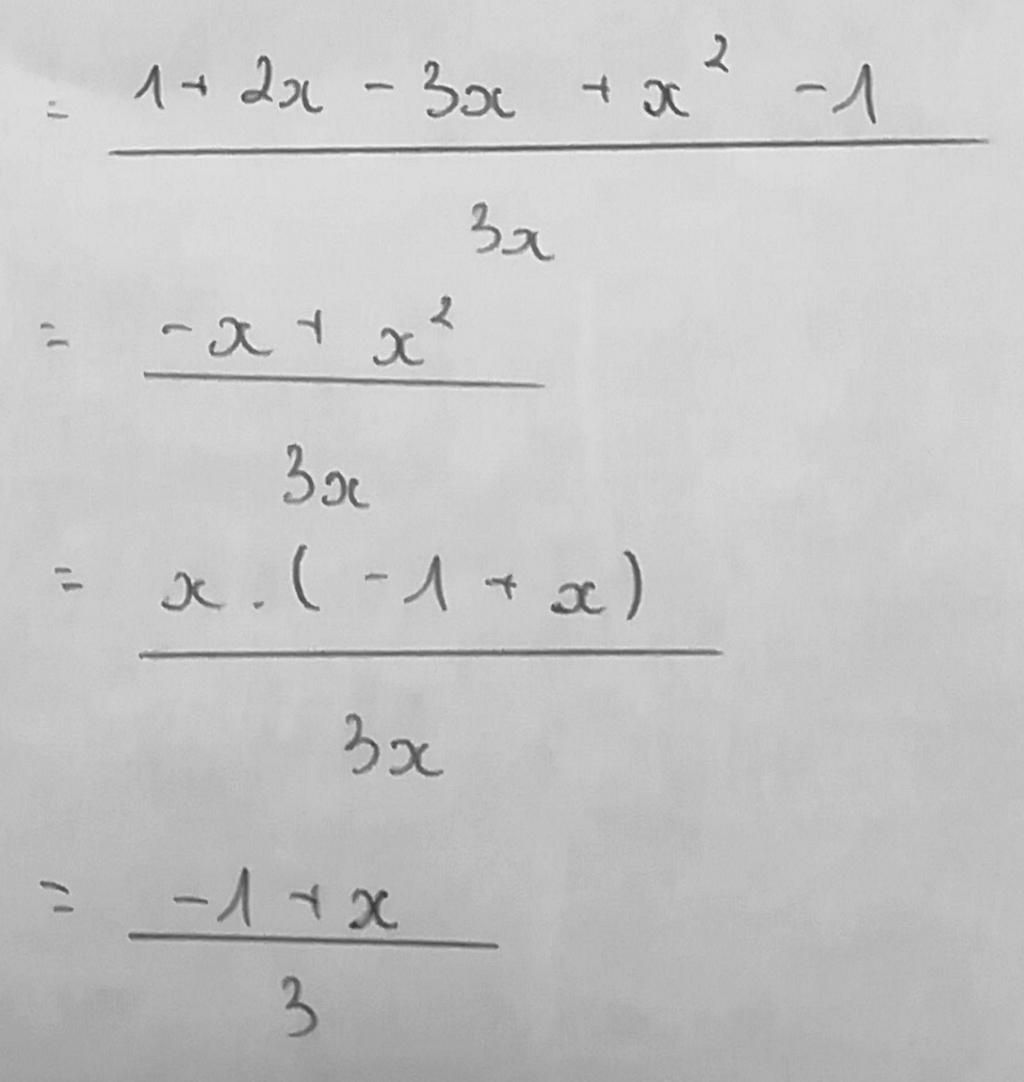 = 1 + 2x - 3x + x² - 1
3x
= -x + x²
3x
= x . ( -1 + x )
3x
= -1 + x
3